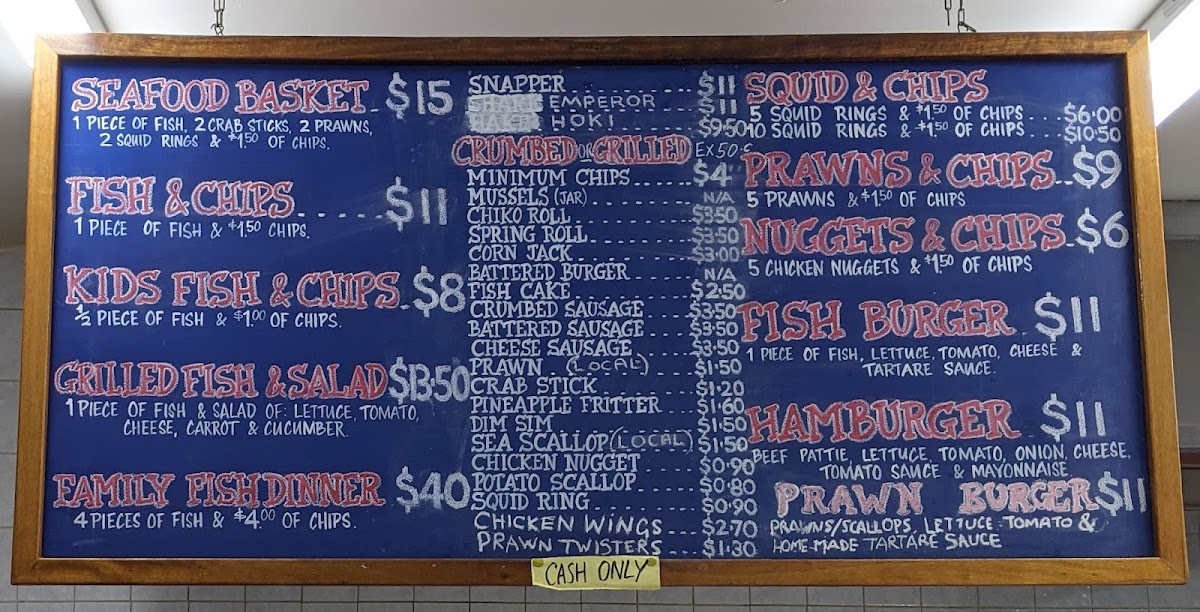 SEAFOOD BASKET $15
1 PIECE OF FISH, 2 CRAB STICKS, 2 PRAWNS,
2 SQUID RINGS & $1.50 OF CHIPS.
FISH & CHIPS ..... $11
1 PIECE OF FISH & $1.50 CHIPS.
KIDS FISH & CHIPS $8
½ PIECE OF FISH & $1.00 OF CHIPS.
GRILLED FISH & SALAD $13.50
1 PIECE OF FISH & SALAD OF: LETTUCE, TOMATO,
CHEESE, CARROT & CUCUMBER.
FAMILY FISH DINNER $40
4 PIECES OF FISH & $4.00 OF CHIPS.
SNAPPER $11
EMPEROR $11
HOKI $9.50
CRUMBED OR GRILLED EX 50 C
MINIMUM CHIPS $4
MUSSELS (JAR) N/A
CHIKO ROLL $3.50
SPRING ROLL $3.50
CORN JACK $3.00
BATTERED BURGER N/A
FISH CAKE $2.50
CRUMBED SAUSAGE $3.50
BATTERED SAUSAGE $3.50
CHEESE SAUSAGE $3.50
PRAWN (LOCAL) $1.50
CRAB STICK $1.20
PINEAPPLE FRITTER $1.60
DIM SIM $1.50
SEA SCALLOP (LOCAL) $1.50
CHICKEN NUGGET $0.90
POTATO SCALLOP $0.80
SQUID RING $0.90
CHICKEN WINGS $2.70
PRAWN TWISTERS $1.30
SQUID & CHIPS
5 SQUID RINGS & $1.50 OF CHIPS $6.00
10 SQUID RINGS & $1.50 OF CHIPS $10.50
PRAWNS & CHIPS $9
5 PRAWNS & $1.50 OF CHIPS
NUGGETS & CHIPS $6
5 CHICKEN NUGGETS & $1.50 OF CHIPS
FISH BURGER $11
1 PIECE OF FISH, LETTUCE, TOMATO, CHEESE &
TARTARE SAUCE.
HAMBURGER $11
BEEF PATTIE, LETTUCE, TOMATO, ONION, CHEESE,
TOMATO SAUCE & MAYONNAISE
PRAWN BURGER $11
PRAWNS/SCALLOPS, LETTUCE TOMATO &
HOME-MADE TARTARE SAUCE
CASH ONLY